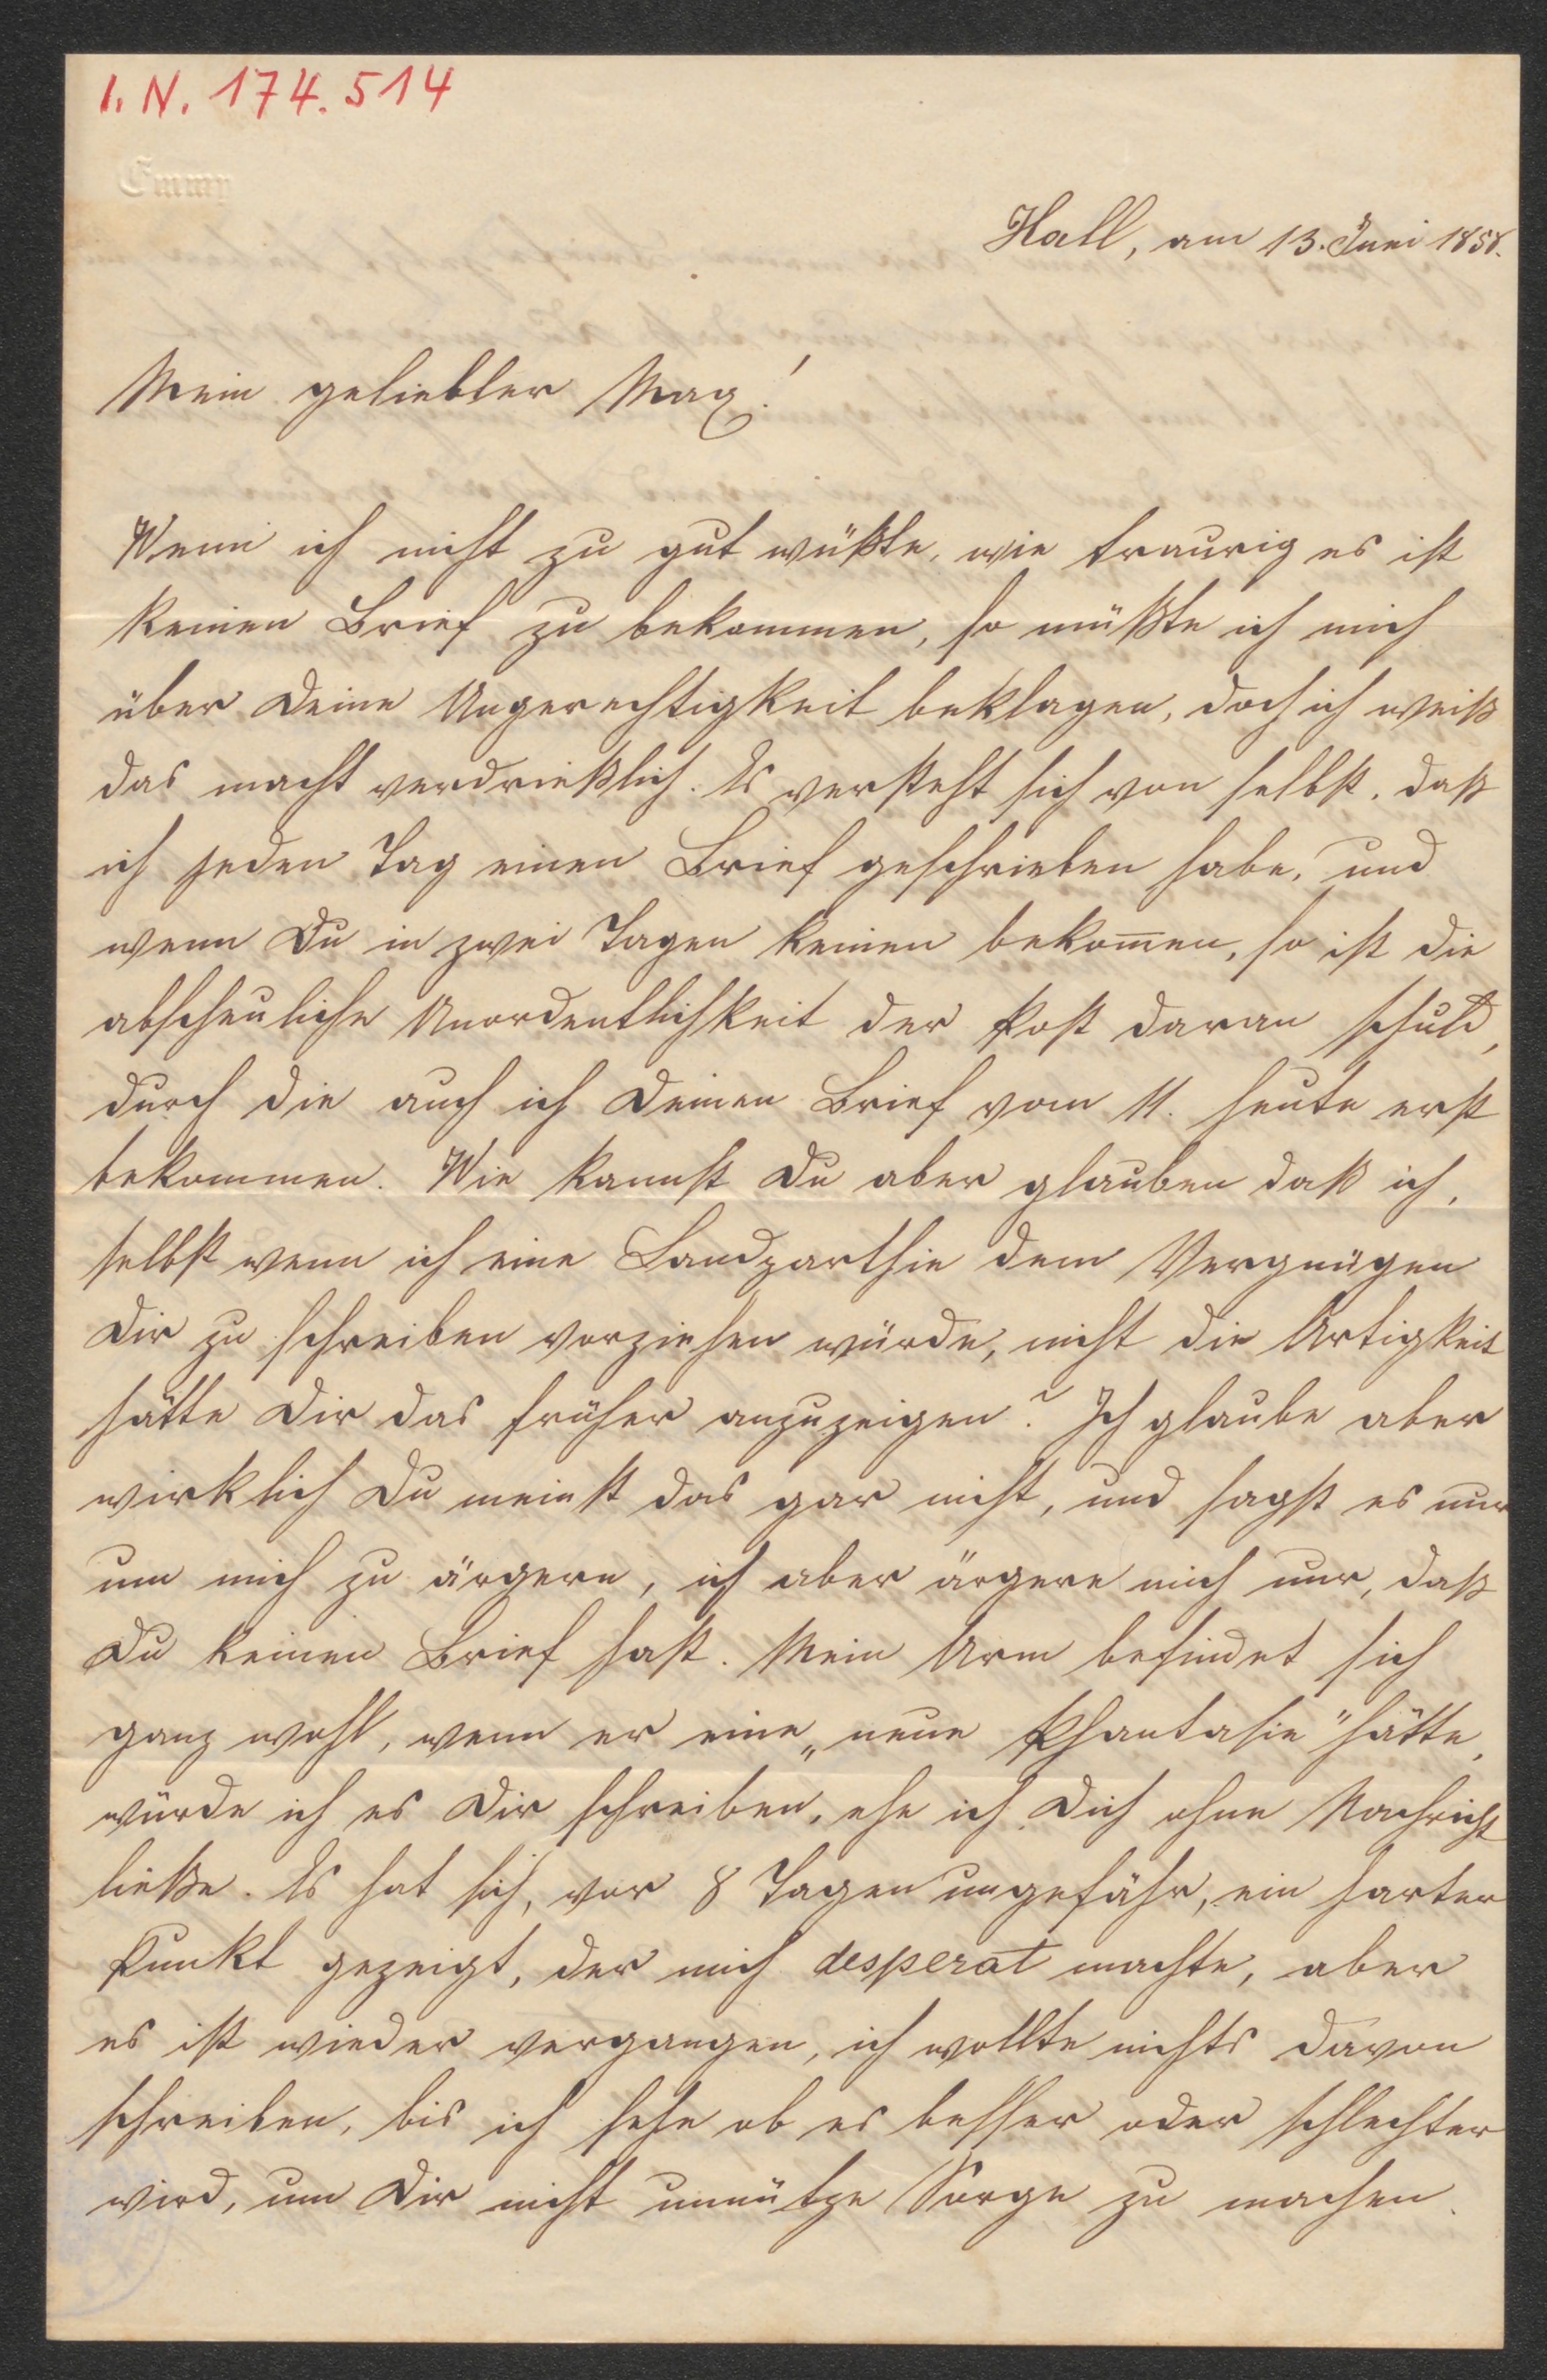 I. N. 174.514
Emmy
Hall, am 13. Juni 1858.
Mein geliebter Max!
Wenn ich nicht zu gut wüßte, wie traurig es ist
keinen Brief zu bekommen, so müßte ich mich
über Deine Ungerechtigkeit beklagen, doch ich weiß
das macht verdrießlich. Es versteht sich von selbst, daß
ich jeden Tag einen Brief geschrieben habe, und
wenn Du in zwei Tagen keinen bekom̄en, so ist die
abscheuliche Unordentlichkeit der Post daran schuld,
durch die auch ich Deinen Brief vom 11. heute erst
bekommen. Wie kannst Du aber glauben daß ich,
selbst wenn ich eine Landparthie dem Vergnügen
Dir zu schreiben vorziehen würde, nicht die Artigkeit
hätte Dir das früher anzuzeigen? Ich glaube aber
wirklich Du meinst das gar nicht, und sagst es nur
um mich zu ärgern, ich aber ärgere mich nur, daß
Du keinen Brief hast. Mein Arm befindet sich
ganz wohl, wenn er eine „neue Phantasie" hätte,
würde ich es Dir schreiben, ehe ich Dich ohne Nachricht
ließe. Es hat sich, vor 8 Tagen ungefähr, ein harter
Punkt gezeigt, der mich desperat machte, aber
es ist wieder vergangen, ich wollte nichts davon
schreiben, bis ich sehe ob es besser oder schlechter
wird, um Dir nicht unnütze Sorge zu machen.